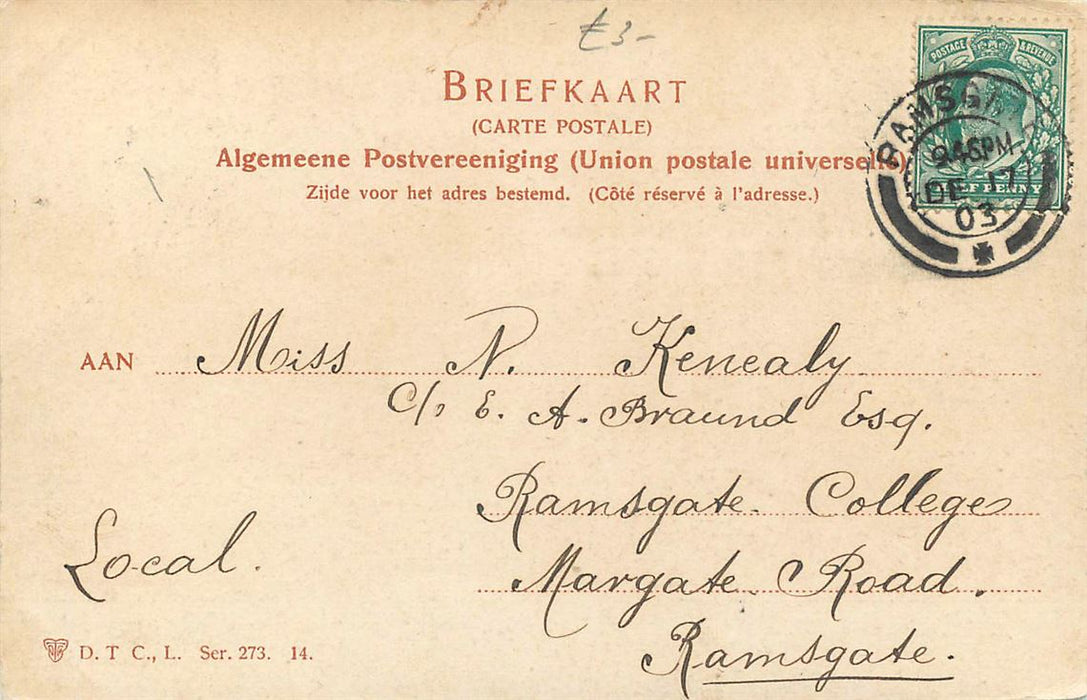 £3-
BRIEFKAART
(CARTE POSTALE)
Algemeene Postvereeniging (Union postale universelle)
Zijde voor het adres bestemd. (Côté réservé à l'adresse.)
POSTAGE & REVENUE
RAMSGA
9.45PM
DE 17
03
PENNY
AAN Miss N. Kenealy
C/o E. A. Braund Esq.
Ramsgate College
Margate Road.
Ramsgate.
Local.
D. T C., L. Ser. 273. 14.